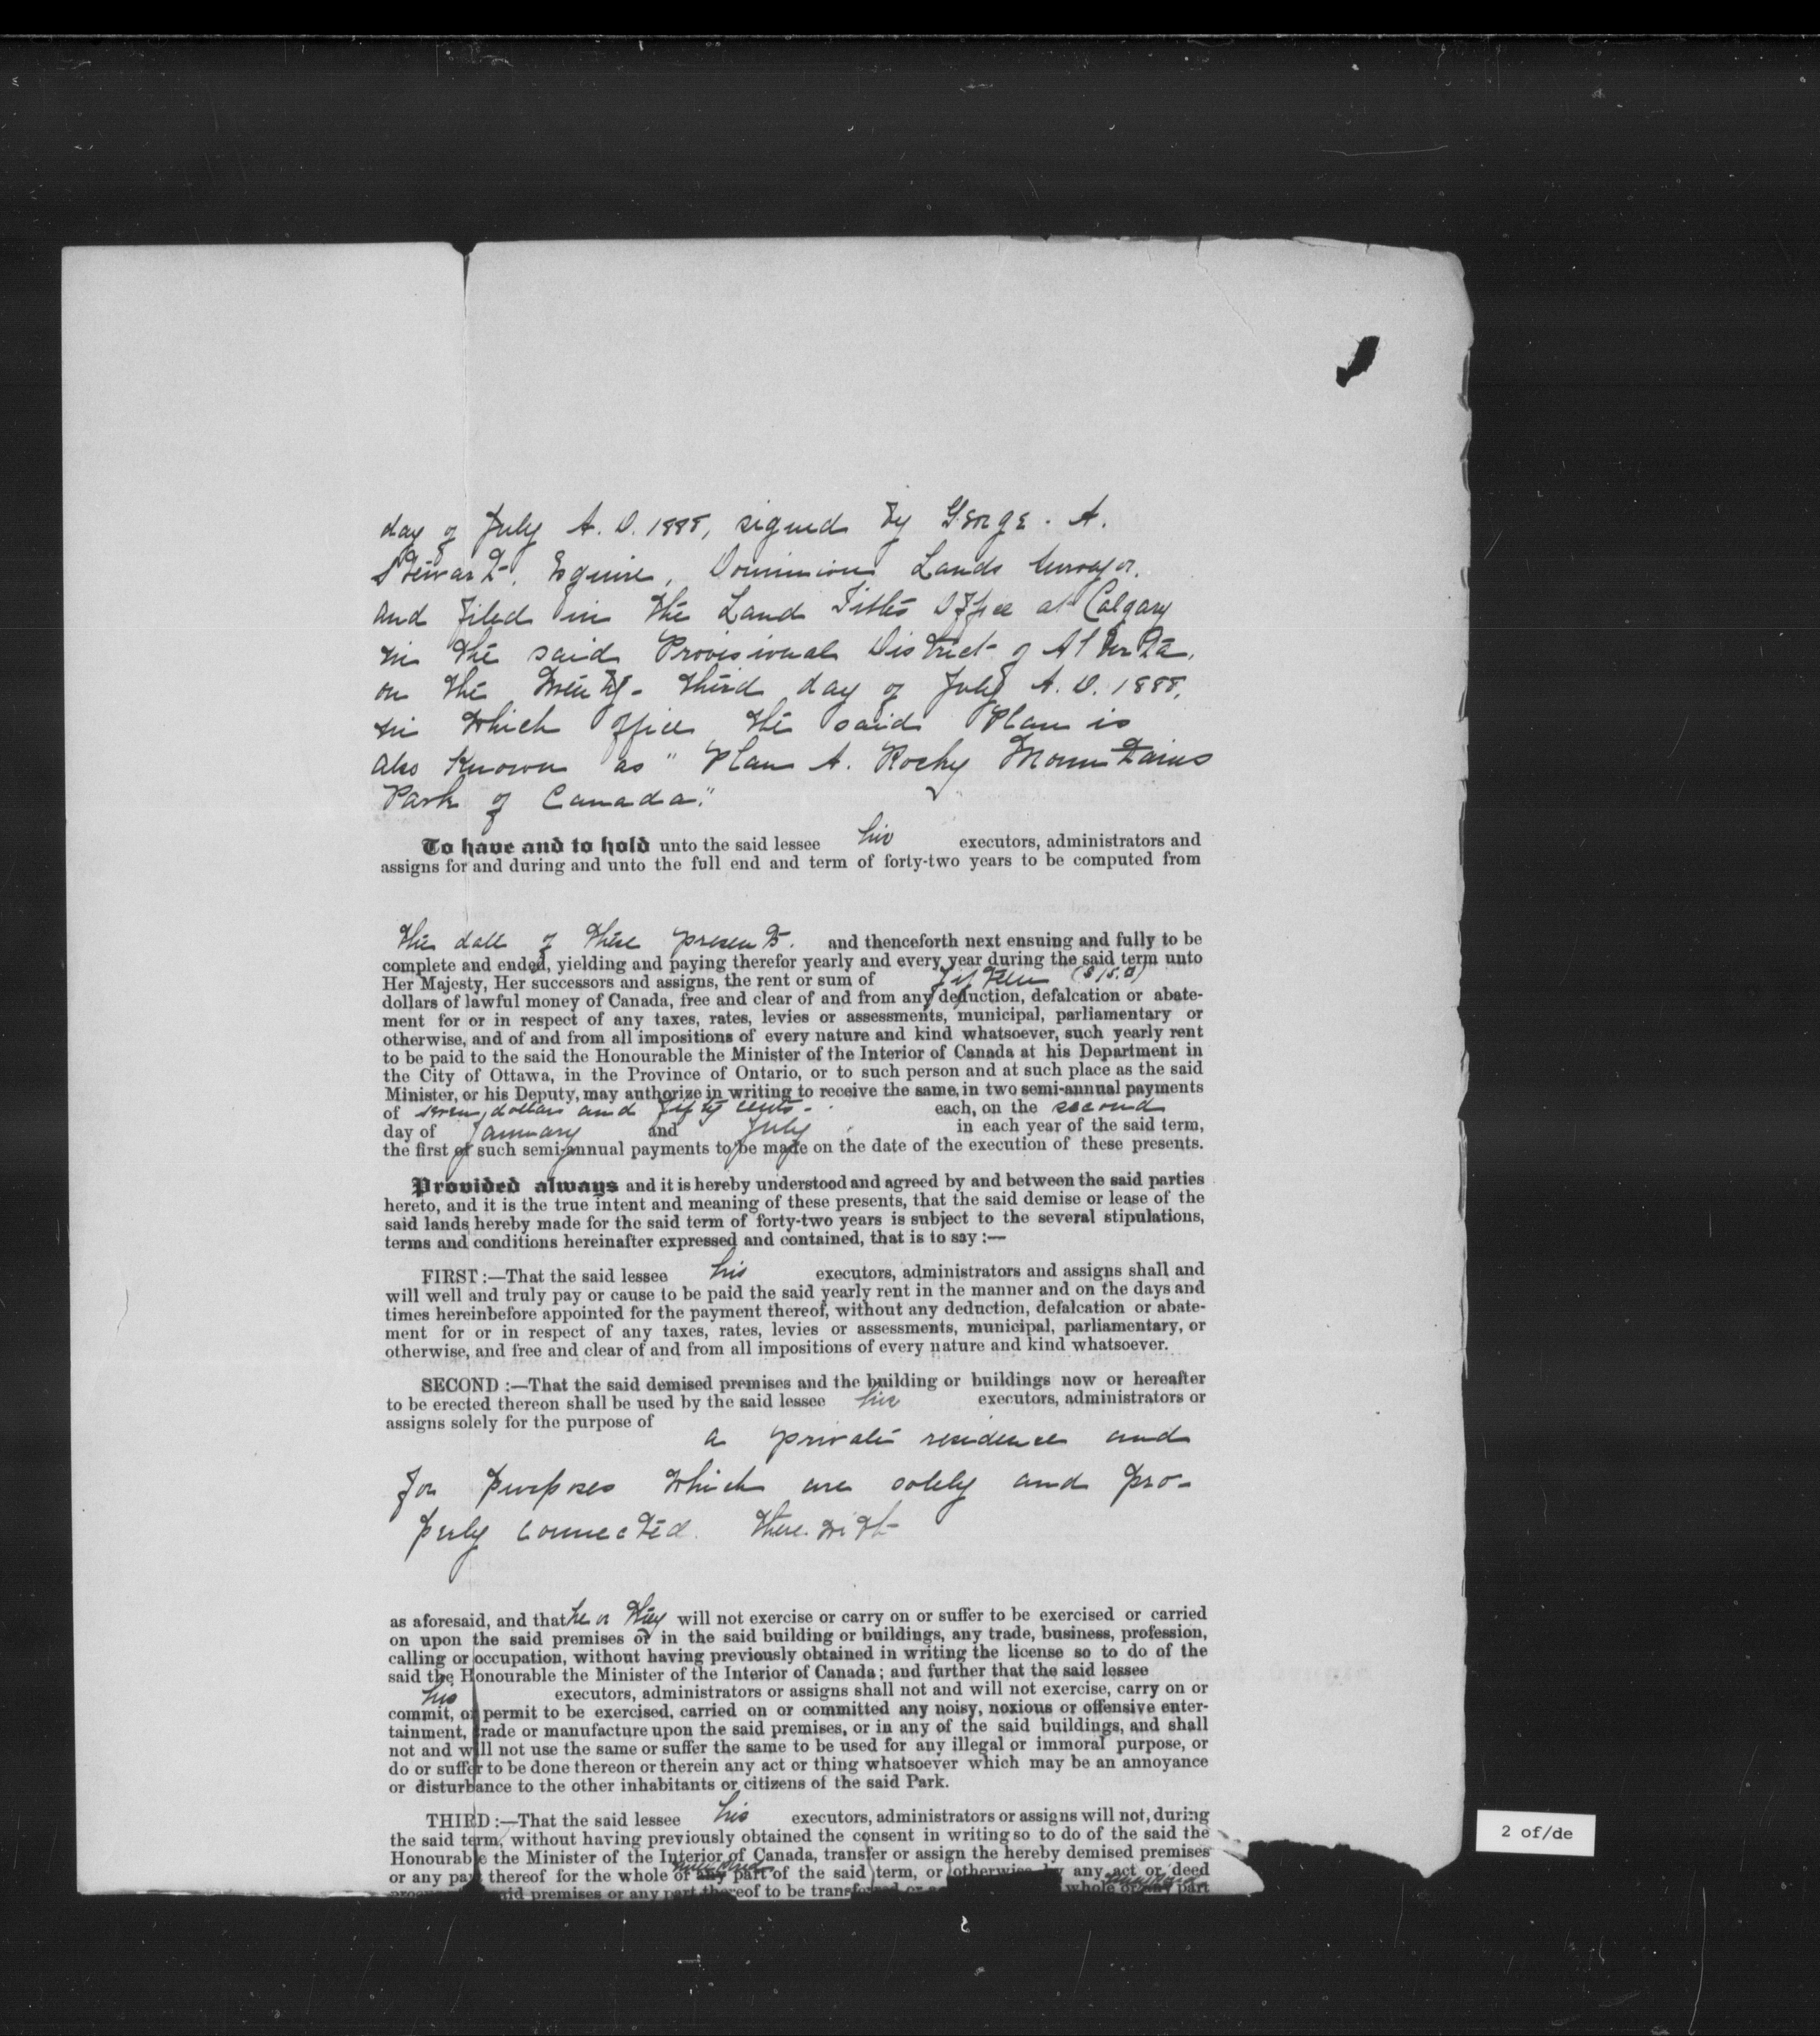 day of July A. D. 1888, signed by George. A.
Stewart, Esquire, Dominion Lands Surveyor,
and filed in the Land Titles Office at Calgary
in the said Provisional District of Alberta,
on the Twenty-third day of July A. D. 1888,
in which office the said Plan is
also known as "Plan A. Rocky Mountains
Park of Canada."
To have and to hold unto the said lessee his executors, administrators and
assigns for and during and unto the full end and term of forty-two years to be computed from
the date of these presents. and thenceforth next ensuing and fully to be
complete and ended, yielding and paying therefor yearly and every year during the said term unto
Her Majesty, Her successors and assigns, the rent or sum of fifteen ($15.0)
dollars of lawful money of Canada, free and clear of and from any deduction, defalcation or abate-
ment for or in respect of any taxes, rates, levies or assessments, municipal, parliamentary or
otherwise, and of and from all impositions of every nature and kind whatsoever, such yearly rent
to be paid to the said the Honourable the Minister of the Interior of Canada at his Department in
the City of Ottawa, in the Province of Ontario, or to such person and at such place as the said
Minister, or his Deputy, may authorize in writing to receive the same, in two semi-annual payments
of seven dollars and fifty cents each, on the second
day of January and July in each year of the said term,
the first of such semi-annual payments to be made on the date of the execution of these presents.
Provided always and it is hereby understood and agreed by and between the said parties
hereto, and it is the true intent and meaning of these presents, that the said demise or lease of the
said lands hereby made for the said term of forty-two years is subject to the several stipulations,
terms and conditions hereinafter expressed and contained, that is to say :—
FIRST :—That the said lessee his executors, administrators and assigns shall and
will well and truly pay or cause to be paid the said yearly rent in the manner and on the days and
times hereinbefore appointed for the payment thereof, without any deduction, defalcation or abate-
ment for or in respect of any taxes, rates, levies or assessments, municipal, parliamentary, or
otherwise, and free and clear of and from all impositions of every nature and kind whatsoever.
SECOND :—That the said demised premises and the building or buildings now or hereafter
to be erected thereon shall be used by the said lessee his executors, administrators or
assigns solely for the purpose of
a private residence and
for purposes which are solely and pro-
perly connected therewith
as aforesaid, and that he or they will not exercise or carry on or suffer to be exercised or carried
on upon the said premises or in the said building or buildings, any trade, business, profession,
calling or occupation, without having previously obtained in writing the license so to do of the
said the Honourable the Minister of the Interior of Canada ; and further that the said lessee
his executors, administrators or assigns shall not and will not exercise, carry on or
commit, or permit to be exercised, carried on or committed any noisy, noxious or offensive enter-
tainment, trade or manufacture upon the said premises, or in any of the said buildings, and shall
not and will not use the same or suffer the same to be used for any illegal or immoral purpose, or
do or suffer to be done thereon or therein any act or thing whatsoever which may be an annoyance
or disturbance to the other inhabitants or citizens of the said Park.
THIRD :—That the said lessee his executors, administrators or assigns will not, during
the said term, without having previously obtained the consent in writing so to do of the said the
Honourable the Minister of the Interior of Canada, transfer or assign the hereby demised premises
or any part thereof for the whole or any part of the said term, or otherwise by any act or deed
said premises or any part thereof to be transferred or whole or any part
2 of/de